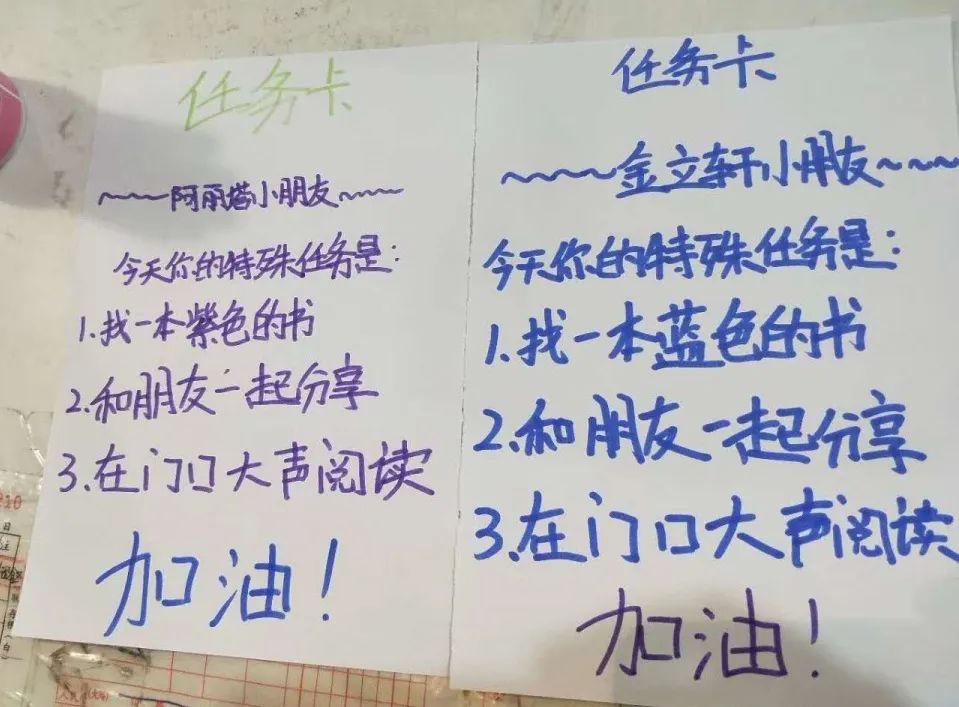 任务卡
~~~~阿丽塔小朋友~~~~
今天你的特殊任务是:
1.找一本紫色的书
2.和朋友一起分享
3.在门口大声阅读
加油!
任务卡
~~~~金立轩小朋友~~~~
今天你的特殊任务是:
1.找一本蓝色的书
2.和朋友一起分享
3.在门口大声阅读
加油!